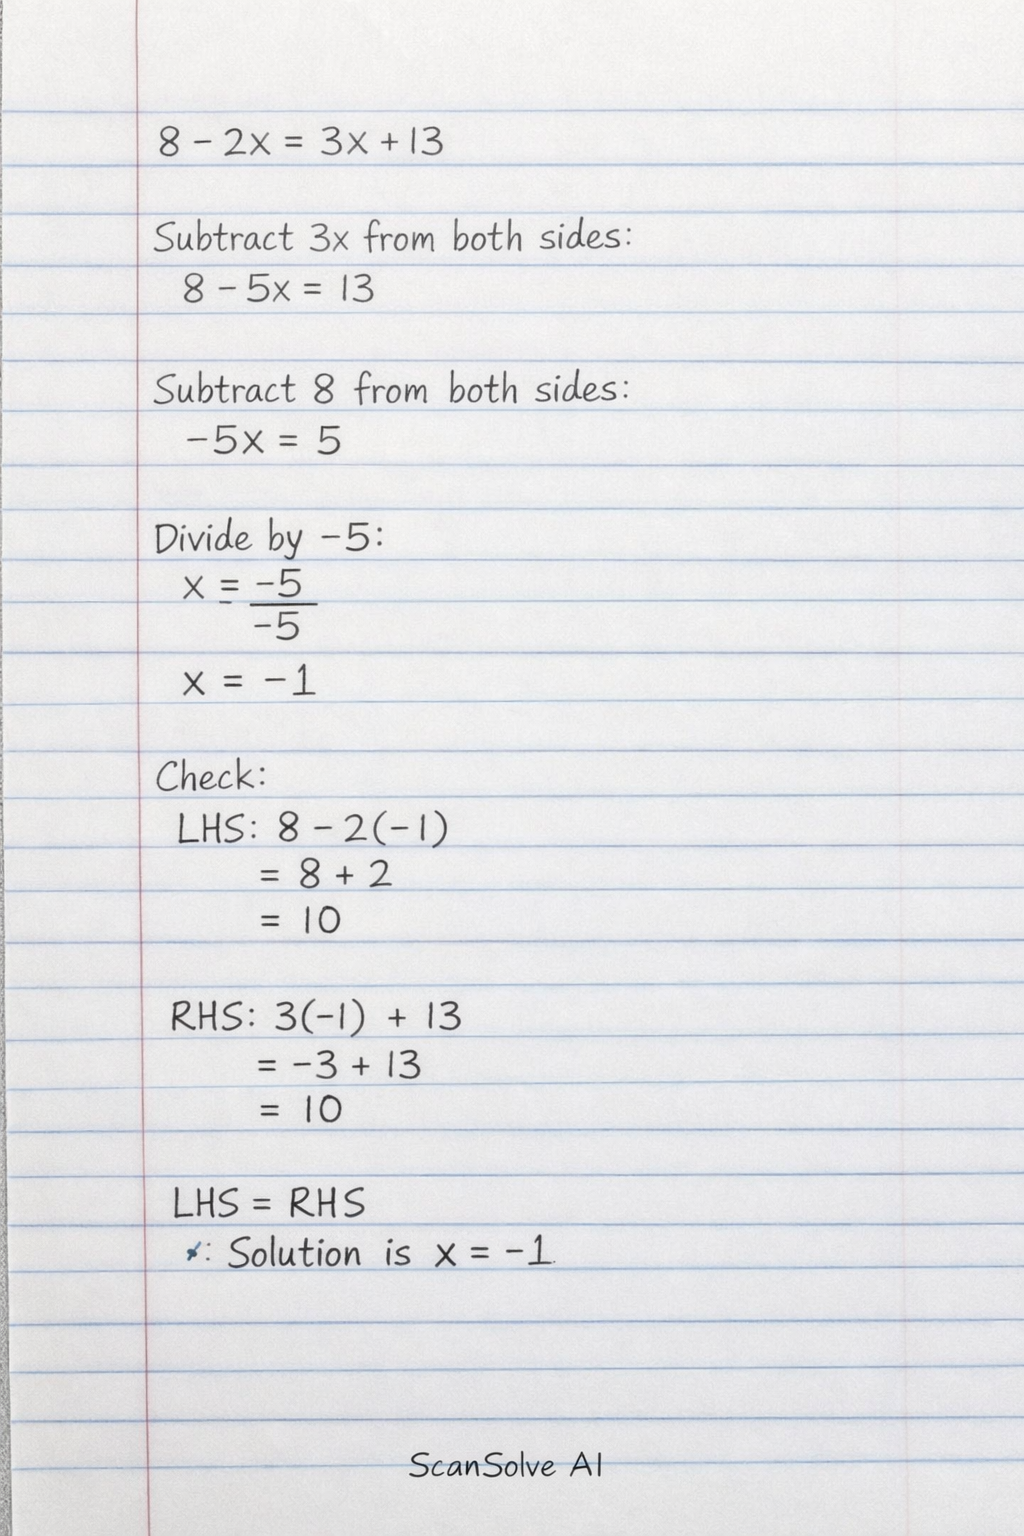 8 - 2x = 3x + 13
Subtract 3x from both sides:
8 - 5x = 13
Subtract 8 from both sides:
-5x = 5
Divide by -5:
x = -5
-5
x = -1
Check:
LHS: 8 - 2(-1)
= 8 + 2
= 10
RHS: 3(-1) + 13
= -3 + 13
= 10
LHS = RHS
Solution is x = -1
ScanSolve AI